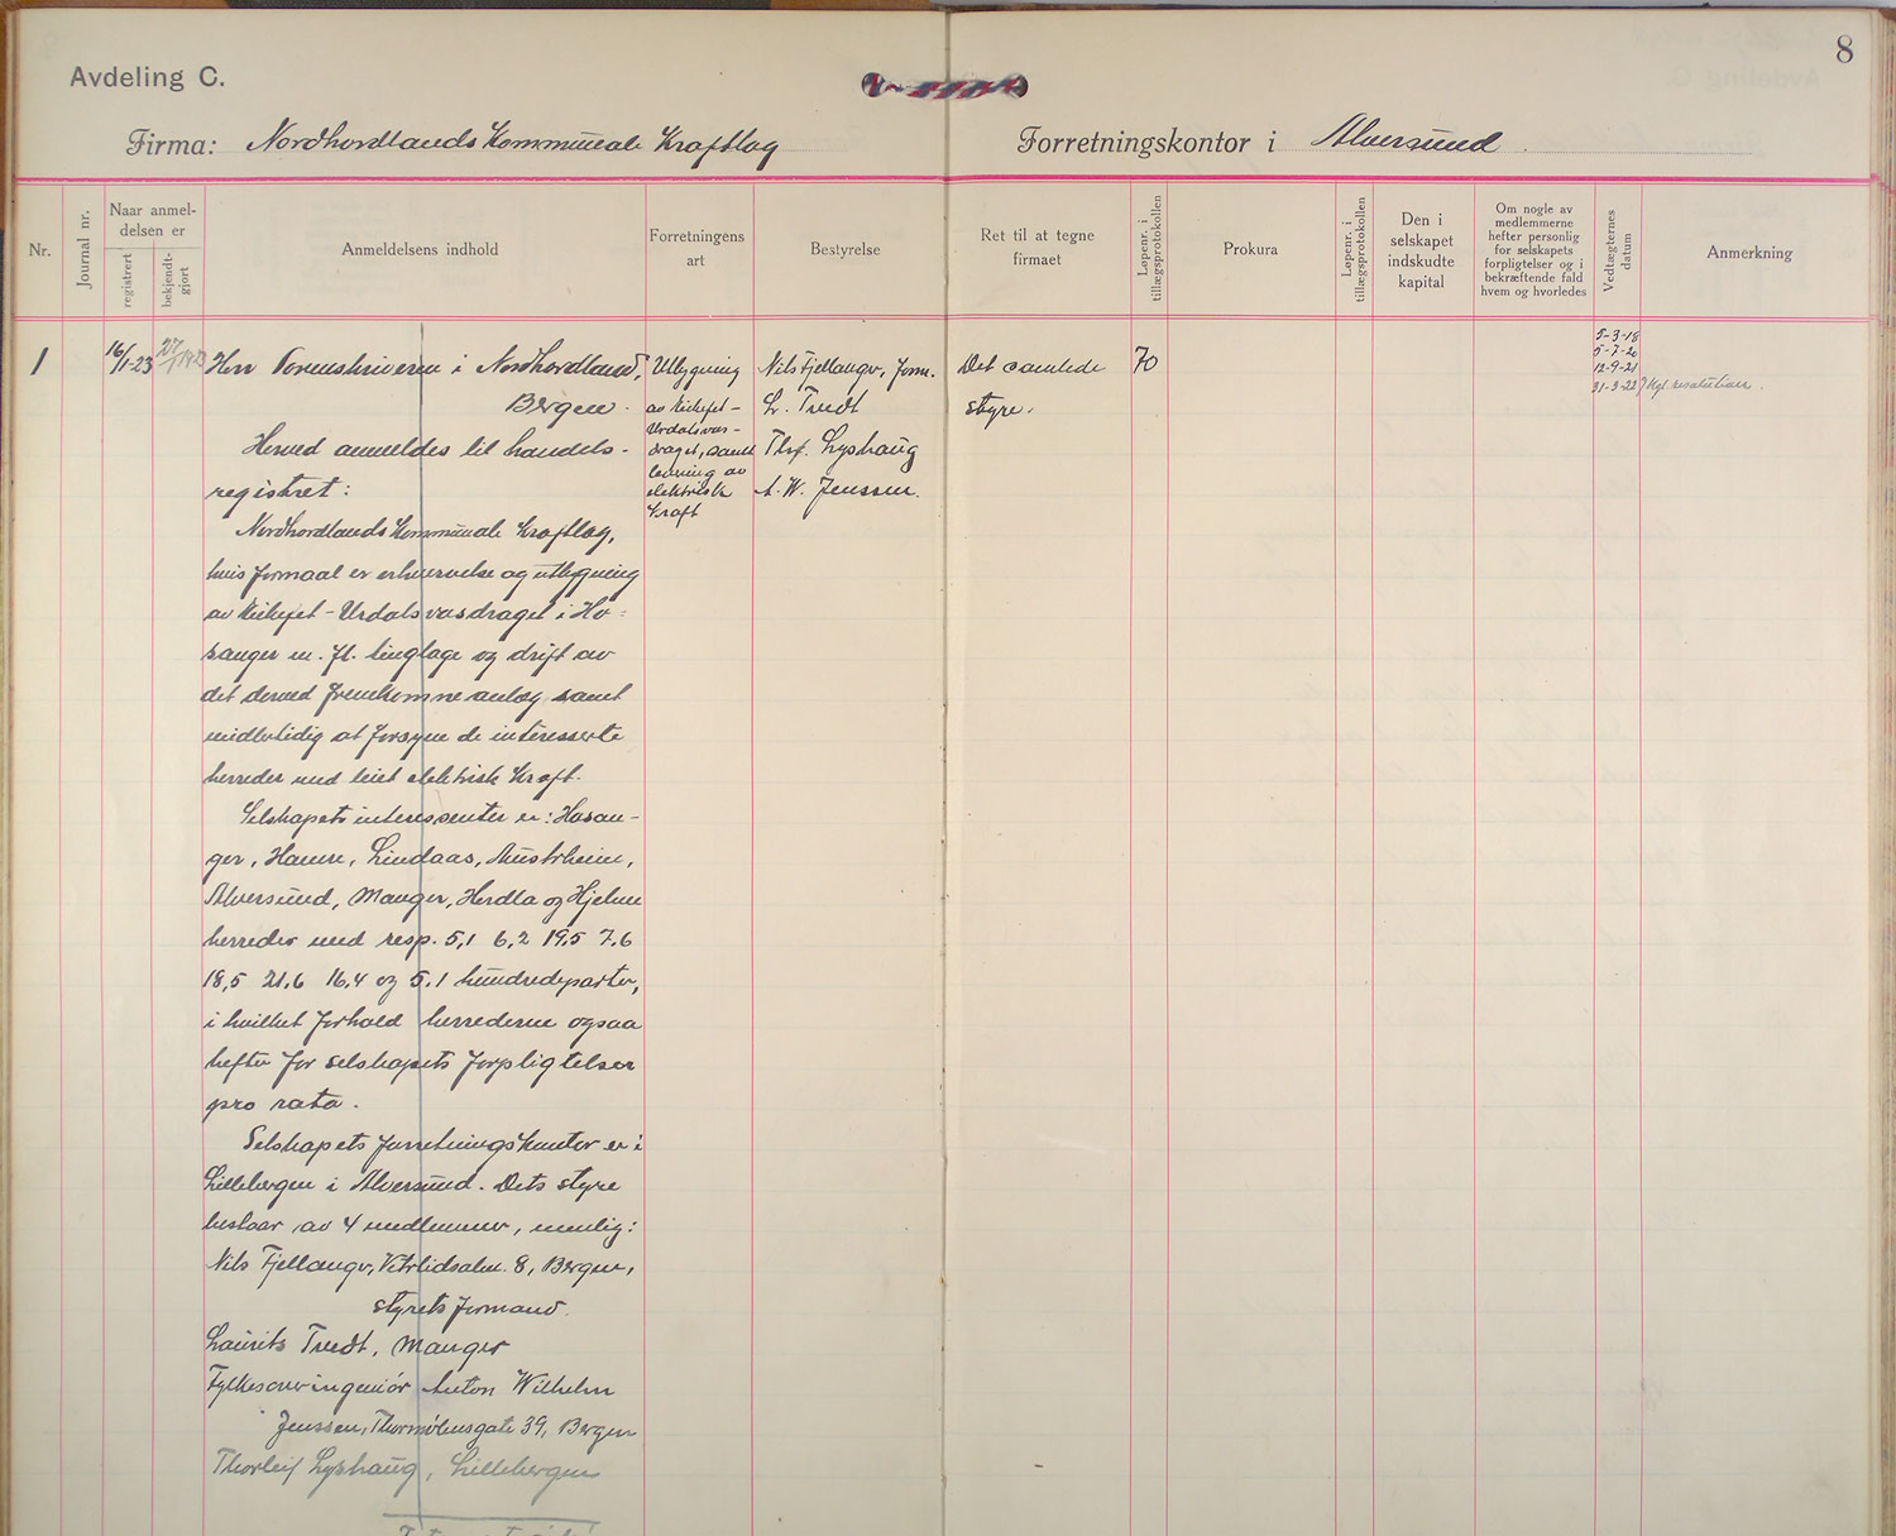 8
Avdeling C.
Firma: Nordhordlands Kommunale Kraftlag
Forretningskontor i Alversund
Nr.
Journal nr.
Naar anmel-
delsen er
registrert
bekjendt-
gjort
Anmeldelsens indhold
Forretningens
art
Bestyrelse
Ret til at tegne
firmaet
Løpenr. i
tillægsprotokollen
Prokura
Løpenr. i
tillægsprotokollen
Den i
selskapet
indskudte
kapital
Om nogle av
medlemmerne
hefter personlig
for selskapets
forpligtelser og i
bekræftende fald
hvem og hvorledes
Vedtægternes
datum
Anmerkning
1
16/1-23
27/1 1923
Herr Sorenskriveren i Nordhordland,
Bergen.
Herved anmeldes til handels-
registret:
Nordhordlands Kommunale Kraftlag,
hvis formaal er erhvervelse og utbygning
av Kikefet-Urdalsvasdraget i Ho-
sanger m. fl. tinglage og drift av
det derved fremkomne anlæg samt
midlertidig at forsyne de interesserte
herreder med leiet elektrisk Kraft.
Selskapets interessenter er: Hosan-
ger, Hamre, Lindaas, Austrheim,
Alversund, Manger, Herdla og Hjelme
herreder med resp. 5,1 6,2 19,5 7,6
18,5 21,6 16,4 og 5,1 hundredeparter,
i hvilket forhold herrederne ogsaa
hefter for selskapets forpligtelser
pro rata.
Selskapets forretningskontor er i
Lillebergen i Alversund. Dets styre
bestaar av 4 medlemmer, nemlig:
Nils Fjellanger, Vetrlidsalm. 8, Bergen,
styrets formand.
Laurits Tvedt, Manger
Fylkesoveringeniør Anton Wilhelm
Jenssen, Thormøhlensgate 39, Bergen
Thorleif Lyshaug, Lillebergen
Utbygning
av Kikefet-
Urdalsvas-
draget, samt
levering av
elektrisk
Kraft
Nils Fjellanger, form.
L. Tvedt
Thf. Lyshaug
A. W. Jenssen.
Det samlede
styre.
70
5-3-18
5-7-20
12-9-21
31-3-22 } Kgl. resolution.